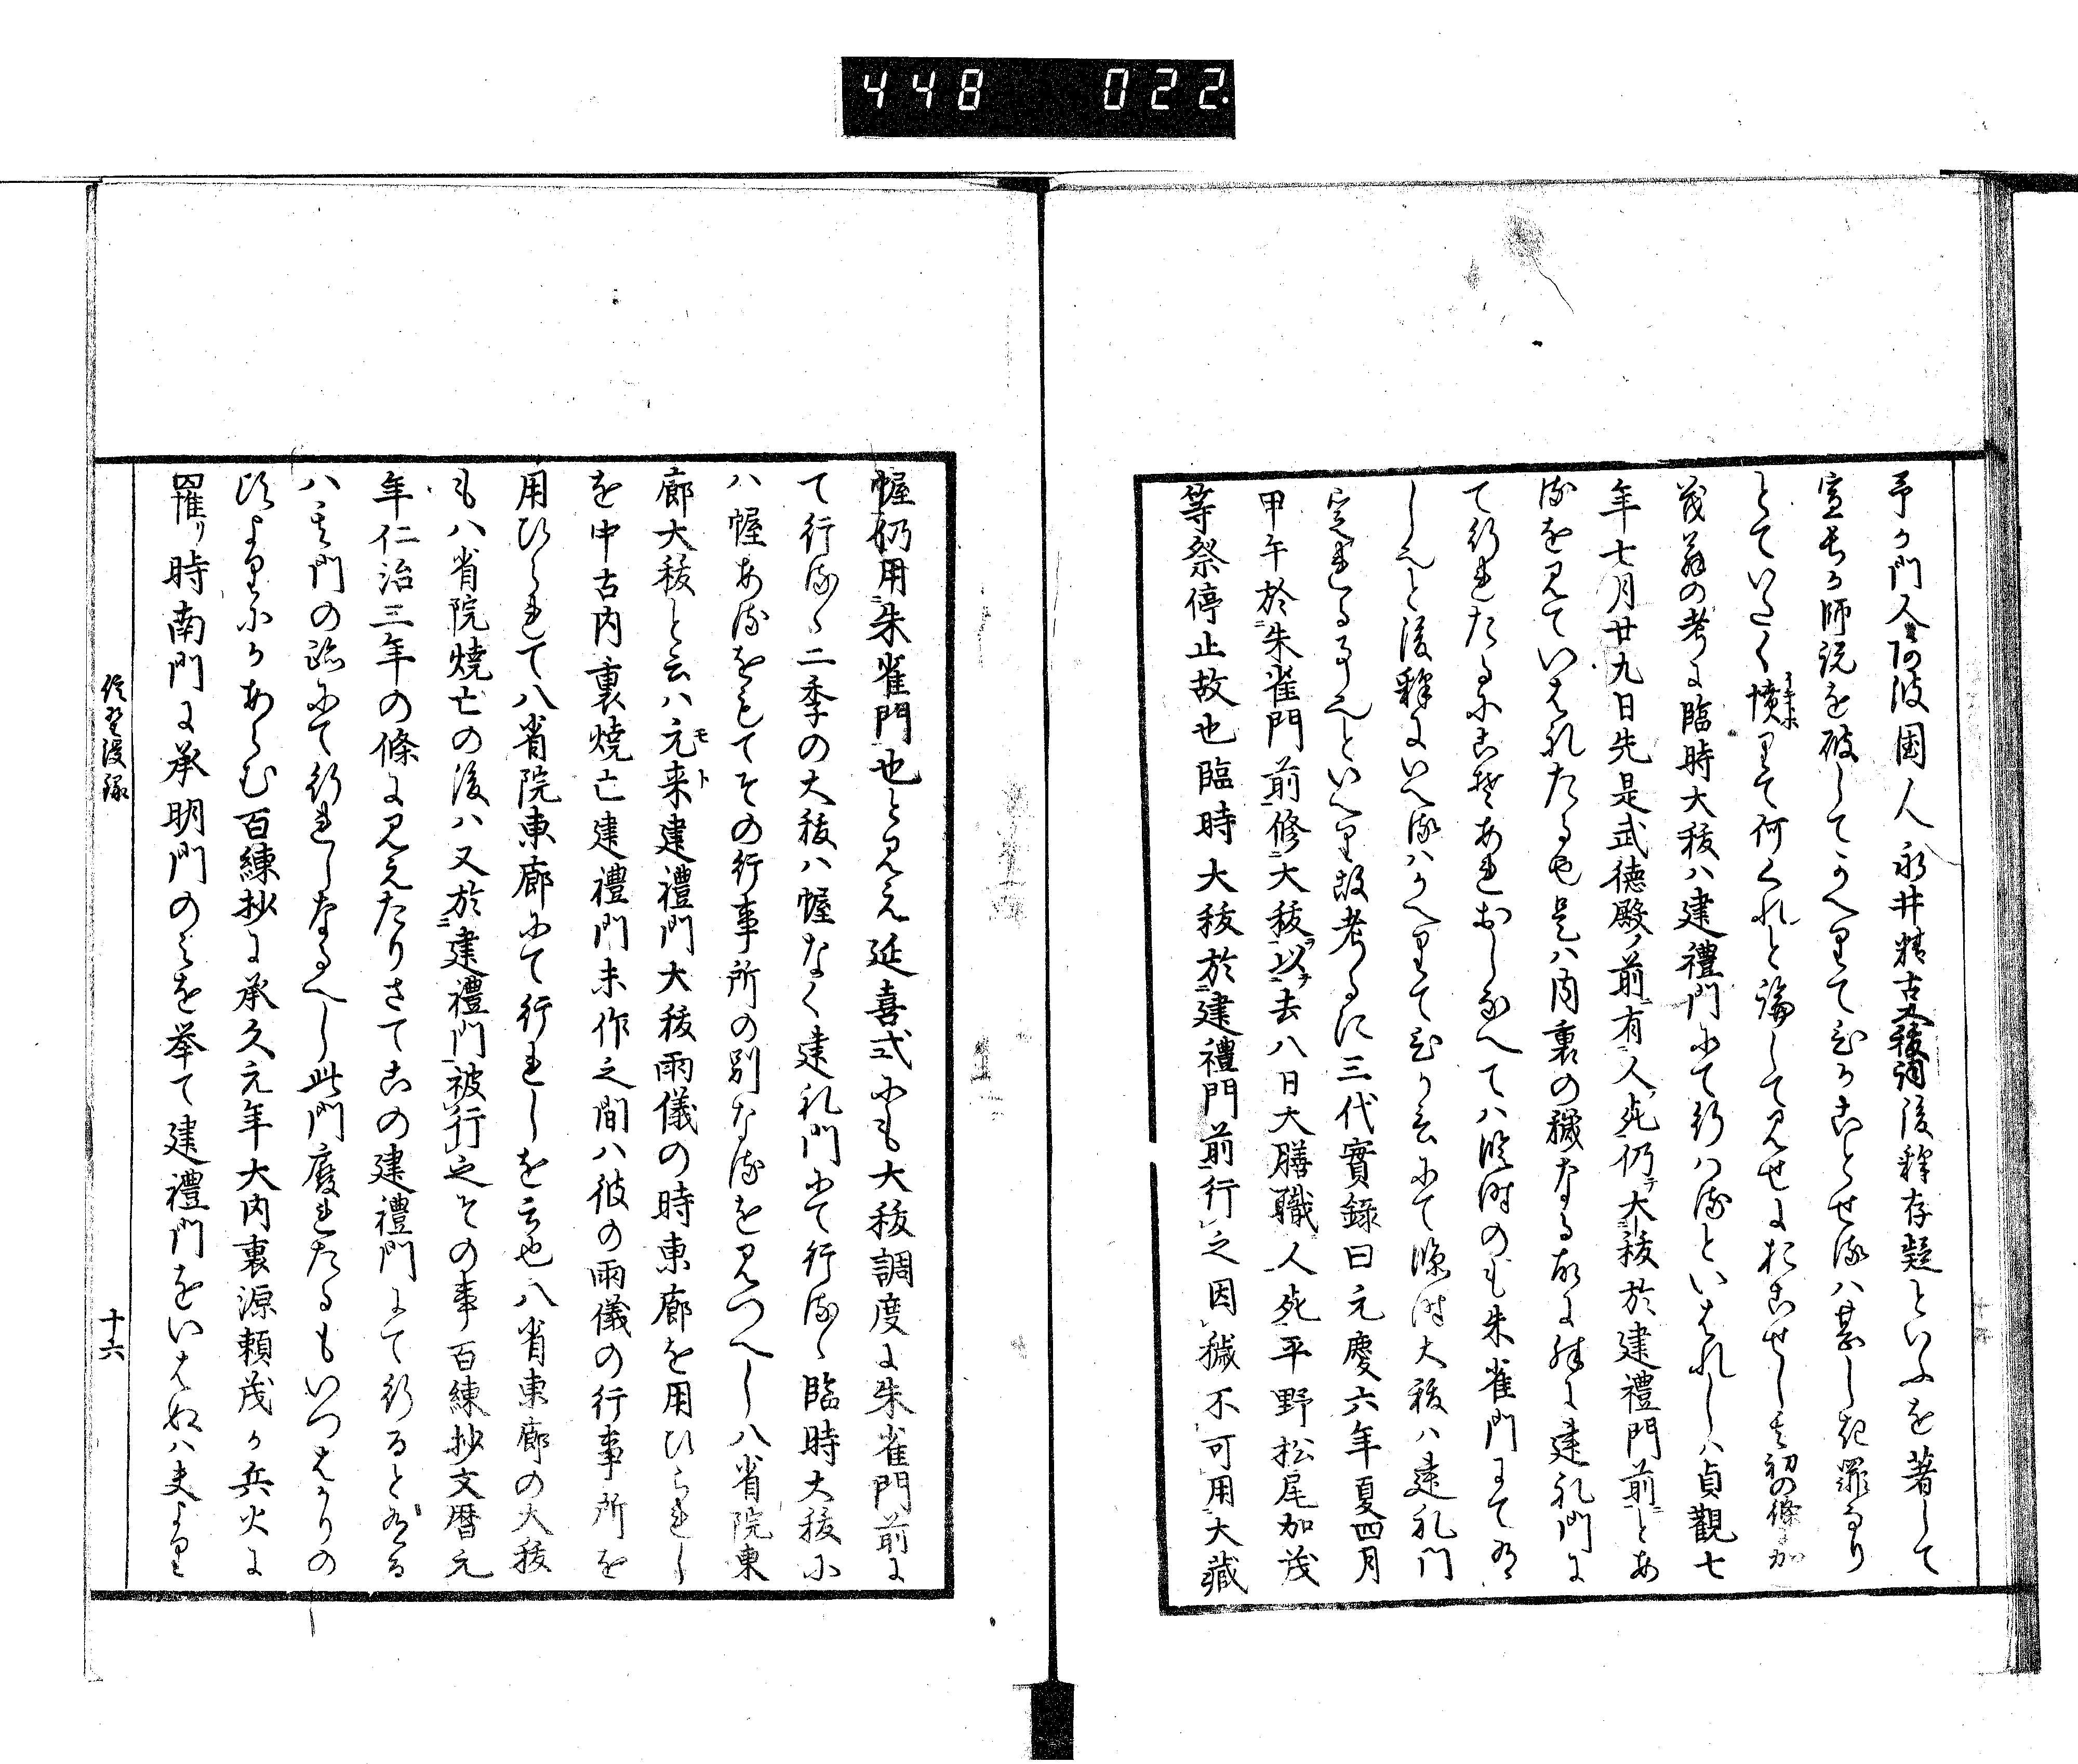 448 022
予か門人阿波国人永井精古大祓詞後釋存疑といふを著して
宣長か師説を破してかへりてひかことせるは甚しき罪なり
とていたく憤りて何くれと論して見せにおこせし其初の條に加
茂翁の考に臨時大祓ハ建禮門にて行ハるといはれしハ貞觀七
年七月廿九日先是武德殿ノ前ニ有人死仍テ大祓於建禮門前ニとあ
るを見ていはれたる也是ハ内裏の穢なる故に殊に建礼門に
て行れたるにこそあれおしなへてハ臨時のも朱雀門にて
しと後釋にいへるハかへりてひか言にて臨時大祓ハ建礼門
定れる事也といへり故考るに三代實録曰元慶六年夏四月
甲午於朱雀門前修大祓以去八日大膳職人死平野松尾加茂
等祭停止故也臨時大祓於建禮門前行之因穢不可用大藏
幄仍用朱雀門也と見え延喜式にも大祓調度に朱雀門前に
て行るゝ二季の大祓ハ幄なく建礼門にて行るゝ臨時大祓に
ハ幄あるをもてその行事所の別なるを見つへし八省院東
廊大祓と云ハ元来建禮門大祓雨儀の時東廊を用ひられし
を中古内裏燒亡建禮門未作之間ハ彼の雨儀の行事所を
用ひられて八省院東廊にて行れしを云也八省東廊の大祓
も八省院燒亡の後ハ又於建禮門被行之その事百練抄文暦元
年仁治三年の條に見えたりさてこの建禮門にて行るとある
ハ其門の跡にて行れしなるへし此門廢れたるもいつはかりの
頃よりにかあらむ百練抄に承久元年大内裏源頼茂か兵火に
罹り時南門に承明門のみを挙て建禮門をいはぬハ夫より
十六